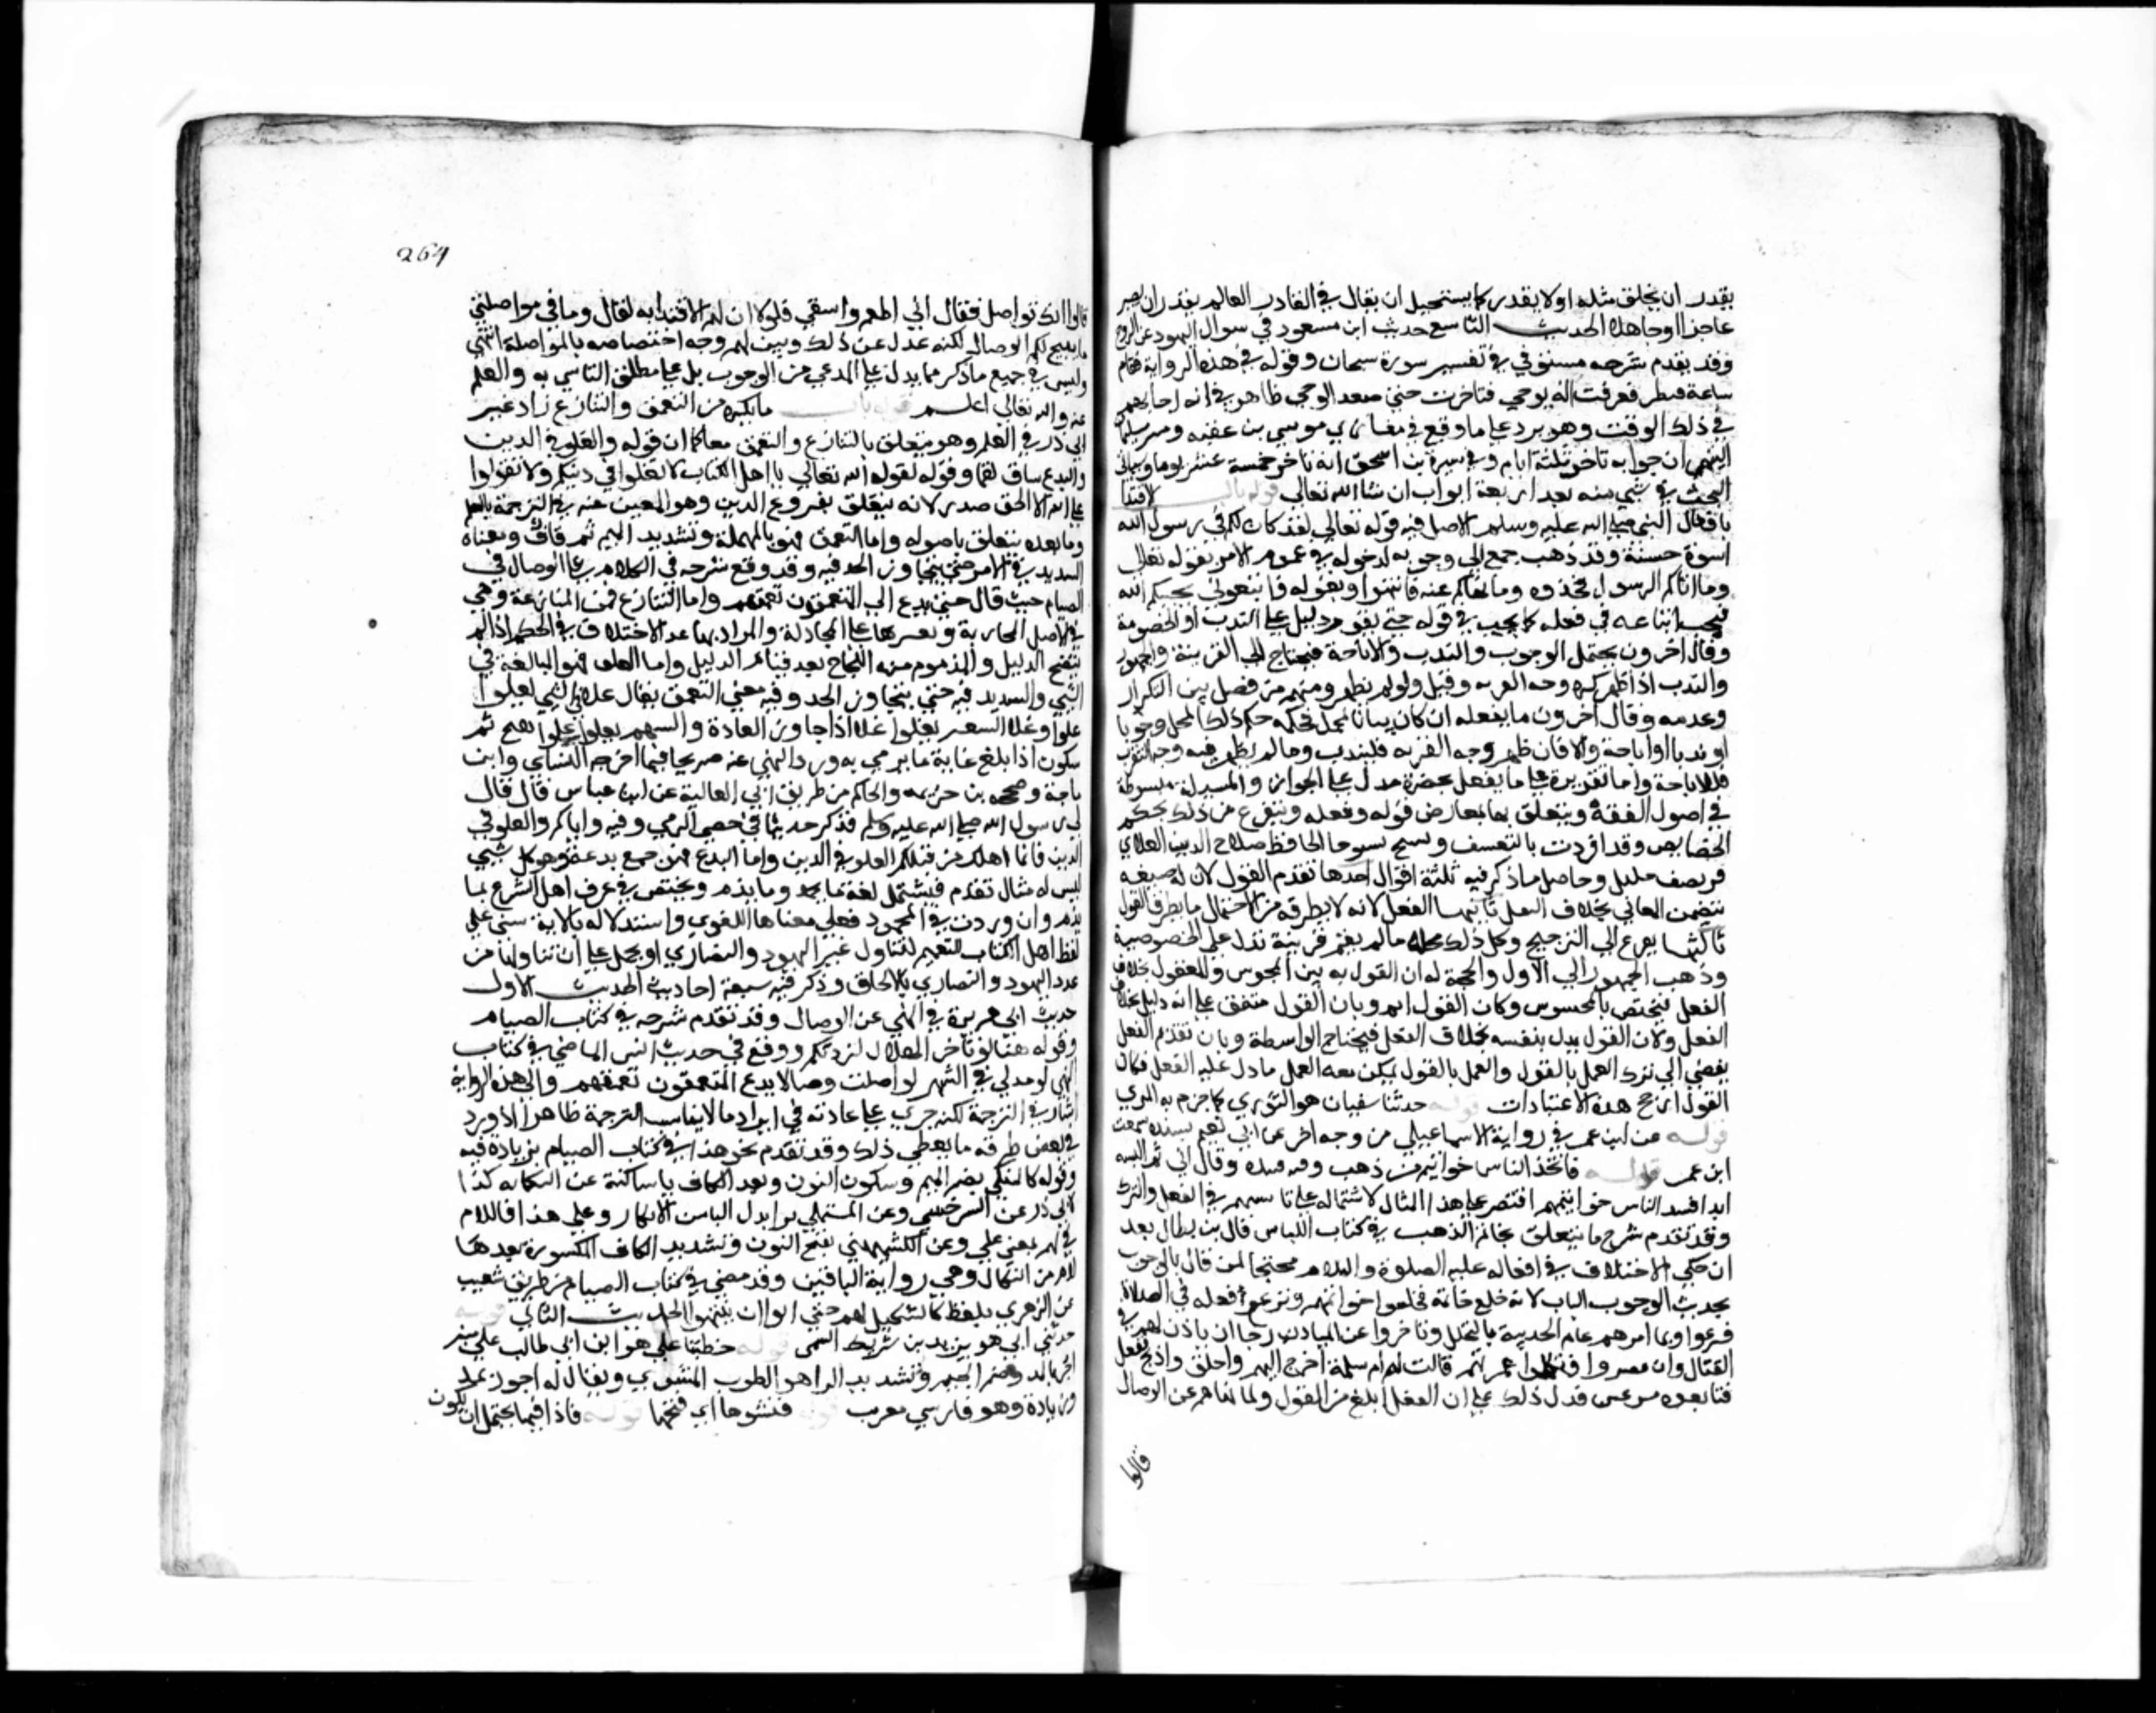 يقدر ان يخلق مثله او لا يقدر كما يستحيل ان يقال في القادر العالم يقدر ان يصير
عاجزا او جاهلا الحديث التاسع حديث ابن مسعود في سوال اليهود عن الروح
وقد تقدم شرحه مستوفي في تفسير سورة سبحان وقوله في هذه الرواية فقام
ساعة فنظر فعرفت انه يوحي فتاخرت حتي صعد الوحي ظاهر في انه اجابهم
في ذلك الوقت وهو يرد علي ما وقع في مغازي موسي بن عقبه وسير سليمان
التيمي ان جوابه تاخر ثلثة ايام وفي سيرة بن اسحق انه تاخر خمسة عشر يوما وسياتي
البحث في شي منه بعد اربعة ابواب ان شا الله تعالي قوله باب الاقتدا
بافعال النبي صلي الله عليه وسلم الاصل فيه قوله تعالي لقد كان لكم في رسول الله
اسوة حسنة وقد ذهب جمع الي وجوبه لدخوله في عموم الامر بقوله تعالي
وما اتاكم الرسول فخذوه وما نهاكم عنه فانتهوا وبقوله فاتبعوني يحببكم الله
فيجب اتباعه في فعله كما يجب في قوله حتي يقوم دليل علي الندب او الخصوصية
وقال اخرون يحتمل الوجوب والندب والاباحة فيحتاج الي القرينة والجمهور
والندب اذا ظهر وجه القربه وقيل ولو لم يظهر ومنهم من فصل بين التكرار
وعدمه وقال اخرون ما يفعله ان كان بيانا لمجمل فحكمه حكم ذلك المجمل وجوبا
او ندبا او اباحة والا فان ظهر وجه القربه فللندب وما لم يظهر فيه وجه التقرب
فللاباحة واما تقريره علي ما يفعل بحضرته فيدل علي الجواز والمسيلة مبسوطة
في اصول الفقه ويتعلق بها تعارض قوله وفعله ويتفرع من ذلك حكم
الخصايص وقد افردت بالتصنيف ولشيخ شيوخنا الحافظ صلاح الدين العلاي
فيه مصنف جليل وحاصل ما ذكر فيه ثلثة اقوال احدها تقدم القول لان له صيغه
تتضمن المعاني بخلاف الفعل ثانيها الفعل لانه لا يطرقه من الاحتمال ما يطرق القول
ثالثها يفزع الي الترجيح وكل ذلك محله ما لم يقم قرينة تدل علي الخصوصية
وذهب الجمهور الي الاول والحجة له ان القول يعبر به عن المحسوس والمعقول بخلاف
الفعل فيختص بالمحسوس وكان القول اتم وبان القول متفق علي انه دليل بخلاف
الفعل ولان القول يدل بنفسه بخلاف الفعل فيحتاج الي واسطة وبان تقديم الفعل
يفضي الي ترك العمل بالقول والعمل بالقول يمكن معه العمل ما دل عليه الفعل فكان
القول ارجح هذه الاعتبارات قوله حدثنا سفيان هو الثوري كما جزم به المزي
قوله عن ابن عمر في رواية الاسماعيلي من وجه اخر عن ابي نعيم بسنده سمعت
ابن عمر قوله فاتخذ الناس خواتيم من ذهب وفيه فنبذه وقال اني لن البسه
ابدا فنبذ الناس خواتيمهم اقتصر علي هذا المثال لاشتماله علي تاسيهم في الفعل والترك
وقد تقدم شرح ما يتعلق بخاتم الذهب في كتاب اللباس قال بن بطال بعد
ان حكي الاختلاف في افعاله عليه الصلوة والسلام محتجا لمن قال بالوجوب
بحديث الباب لانه خلع خاتمه فخلعوا خواتمهم ونزع نعله في الصلاة
فنزعوا ولما امرهم عام الحديبية بالتحلل وتاخروا عن المبادرة رجا ان ياذن لهم في
القتال وان ينصروا فيكملوا عمرتهم قالت له ام سلمة اخرج اليهم واحلق واذبح ففعل
فتابعوه مسرعين فدل ذلك علي ان الفعل ابلغ من القول ولما نهاهم عن الوصال
قالوا
264
قالوا انك تواصل فقال اني اطعم واسقي فلولا ان لهم الاقتدا به لقال وما في مواصلتي
ما يبيح لكم الوصال لكنه عدل عن ذلك وبين لهم وجه اختصاصه بالمواصلة انتهي
وليس في جميع ما ذكر ما يدل علي المدعي من الوجوب بل علي مطلق التاسي به والعلم
عند الله تعالي اعلم قوله باب ما يكره من التعمق والتنازع زاد غير
ابي ذر في العلم وهو يتعلق بالتنازع والتعمق معا كما ان قوله والغلو في الدين
والبدع ساق لهما وقوله لقوله الله تعالي يا اهل الكتاب لا تغلوا في دينكم ولا تقولوا
علي الله الا الحق صدر لانه يتعلق بفروع الدين وهو المعبر عنه في الترجمة بالعلم
وما بعده يتعلق باصوله واما التعمق فهو بالمهملة وتشديد الميم ثم قاف ومعناه
التشديد في الامر حتي يتجاوز الحد فيه وقد وقع شرحه في الكلام علي الوصال في
الصيام حيث قال حتي يدع المتعمقون تعمقهم واما التنازع فمن المنازعة وهي
في الاصل المجاذبة ويعبر بها عن المجادلة والمراد بها عند الاختلاف في الحكم اذا لم
يتضح الدليل والمذموم منه اللجاج بعد قيام الدليل واما الغلو فهو المبالغة في
الشي والتشديد فيه حتي يتجاوز الحد وفيه معني التعمق يقال غلا في الشي يغلوا
غلوا وغلا السعر يغلوا غلا اذا جاوز العادة والسهم يغلوا غلوا بفتح ثم
سكون اذا بلغ غاية ما يرمي به وورد النهي عنه صريحا فيما اخرجه النساي وابن
ماجة وصححه بن خزيمه والحاكم من طريق ابي العالية عن ابن عباس قال قال
لي رسول الله صلي الله عليه وسلم فذكر حديثا في حصي الرمي وفيه واياكم والغلو في
الدين فانما اهلك من قبلكم الغلو في الدين واما البدع فهو جمع بدعة وهو كل شي
ليس له مثال تقدم فيشتمل لغة ما يحمد وما يذم ويختص في عرف اهل الشرع بما
يذم وان وردت في المحمود فعلي معناها اللغوي واستدلاله بالاية يبني علي
لفظ اهل الكتاب للتعميم ليتناول غير اليهود والنصاري او يحمل علي ان تناولها من
عدا اليهود والنصاري بالالحاق وذكر فيه سبعة احاديث الحديث الاول
حديث ابي هريرة في النهي عن الوصال وقد تقدم شرحه في كتاب الصيام
وقوله هنا لو تاخر الهلال لزدتكم ووقع في حديث انس الماضي في كتاب
التمني لو مد لي في الشهر لواصلت وصالا يدع المتعمقون تعمقهم والي هذه الرواية
اشار في الترجمة لكنه جري علي عادته في ايراد ما لا يناسب الترجمة ظاهرا اذا ورد
في بعض طرقه ما يعطي ذلك وقد تقدم نحو هذا في كتاب الصيام بزيادة فيه
وقوله كالمنكي بضم الميم وسكون النون وبعد الكاف ياء ساكنة من النكايه كذا
لابي ذر عن السرخسي وعن المستملي برا بدل اليا من الانكار وعلي هذا فاللام
في لهم بمعني علي وعن الكشميهني بفتح النون وتشديد الكاف المكسورة بعدها
لام من النكال وهي رواية الباقين وقد مضي في كتاب الصيام من طريق شعيب
عن الزهري بلفظ كالتنكيل لهم حتي ابوا ان ينتهوا الحديث الثاني قوله
حدثني ابي هو يزيد بن شريك التيمي قوله خطبنا علي هو ابن ابي طالب علي منبر
اجر بالمد وضم الجيم وتشديد الرا هو الطوب المشوي ويقال له اجور بمد
وزيادة وهو فارسي معرب قوله فنشرها اي فتحها قوله فاذا فيها يحتمل ان يكون